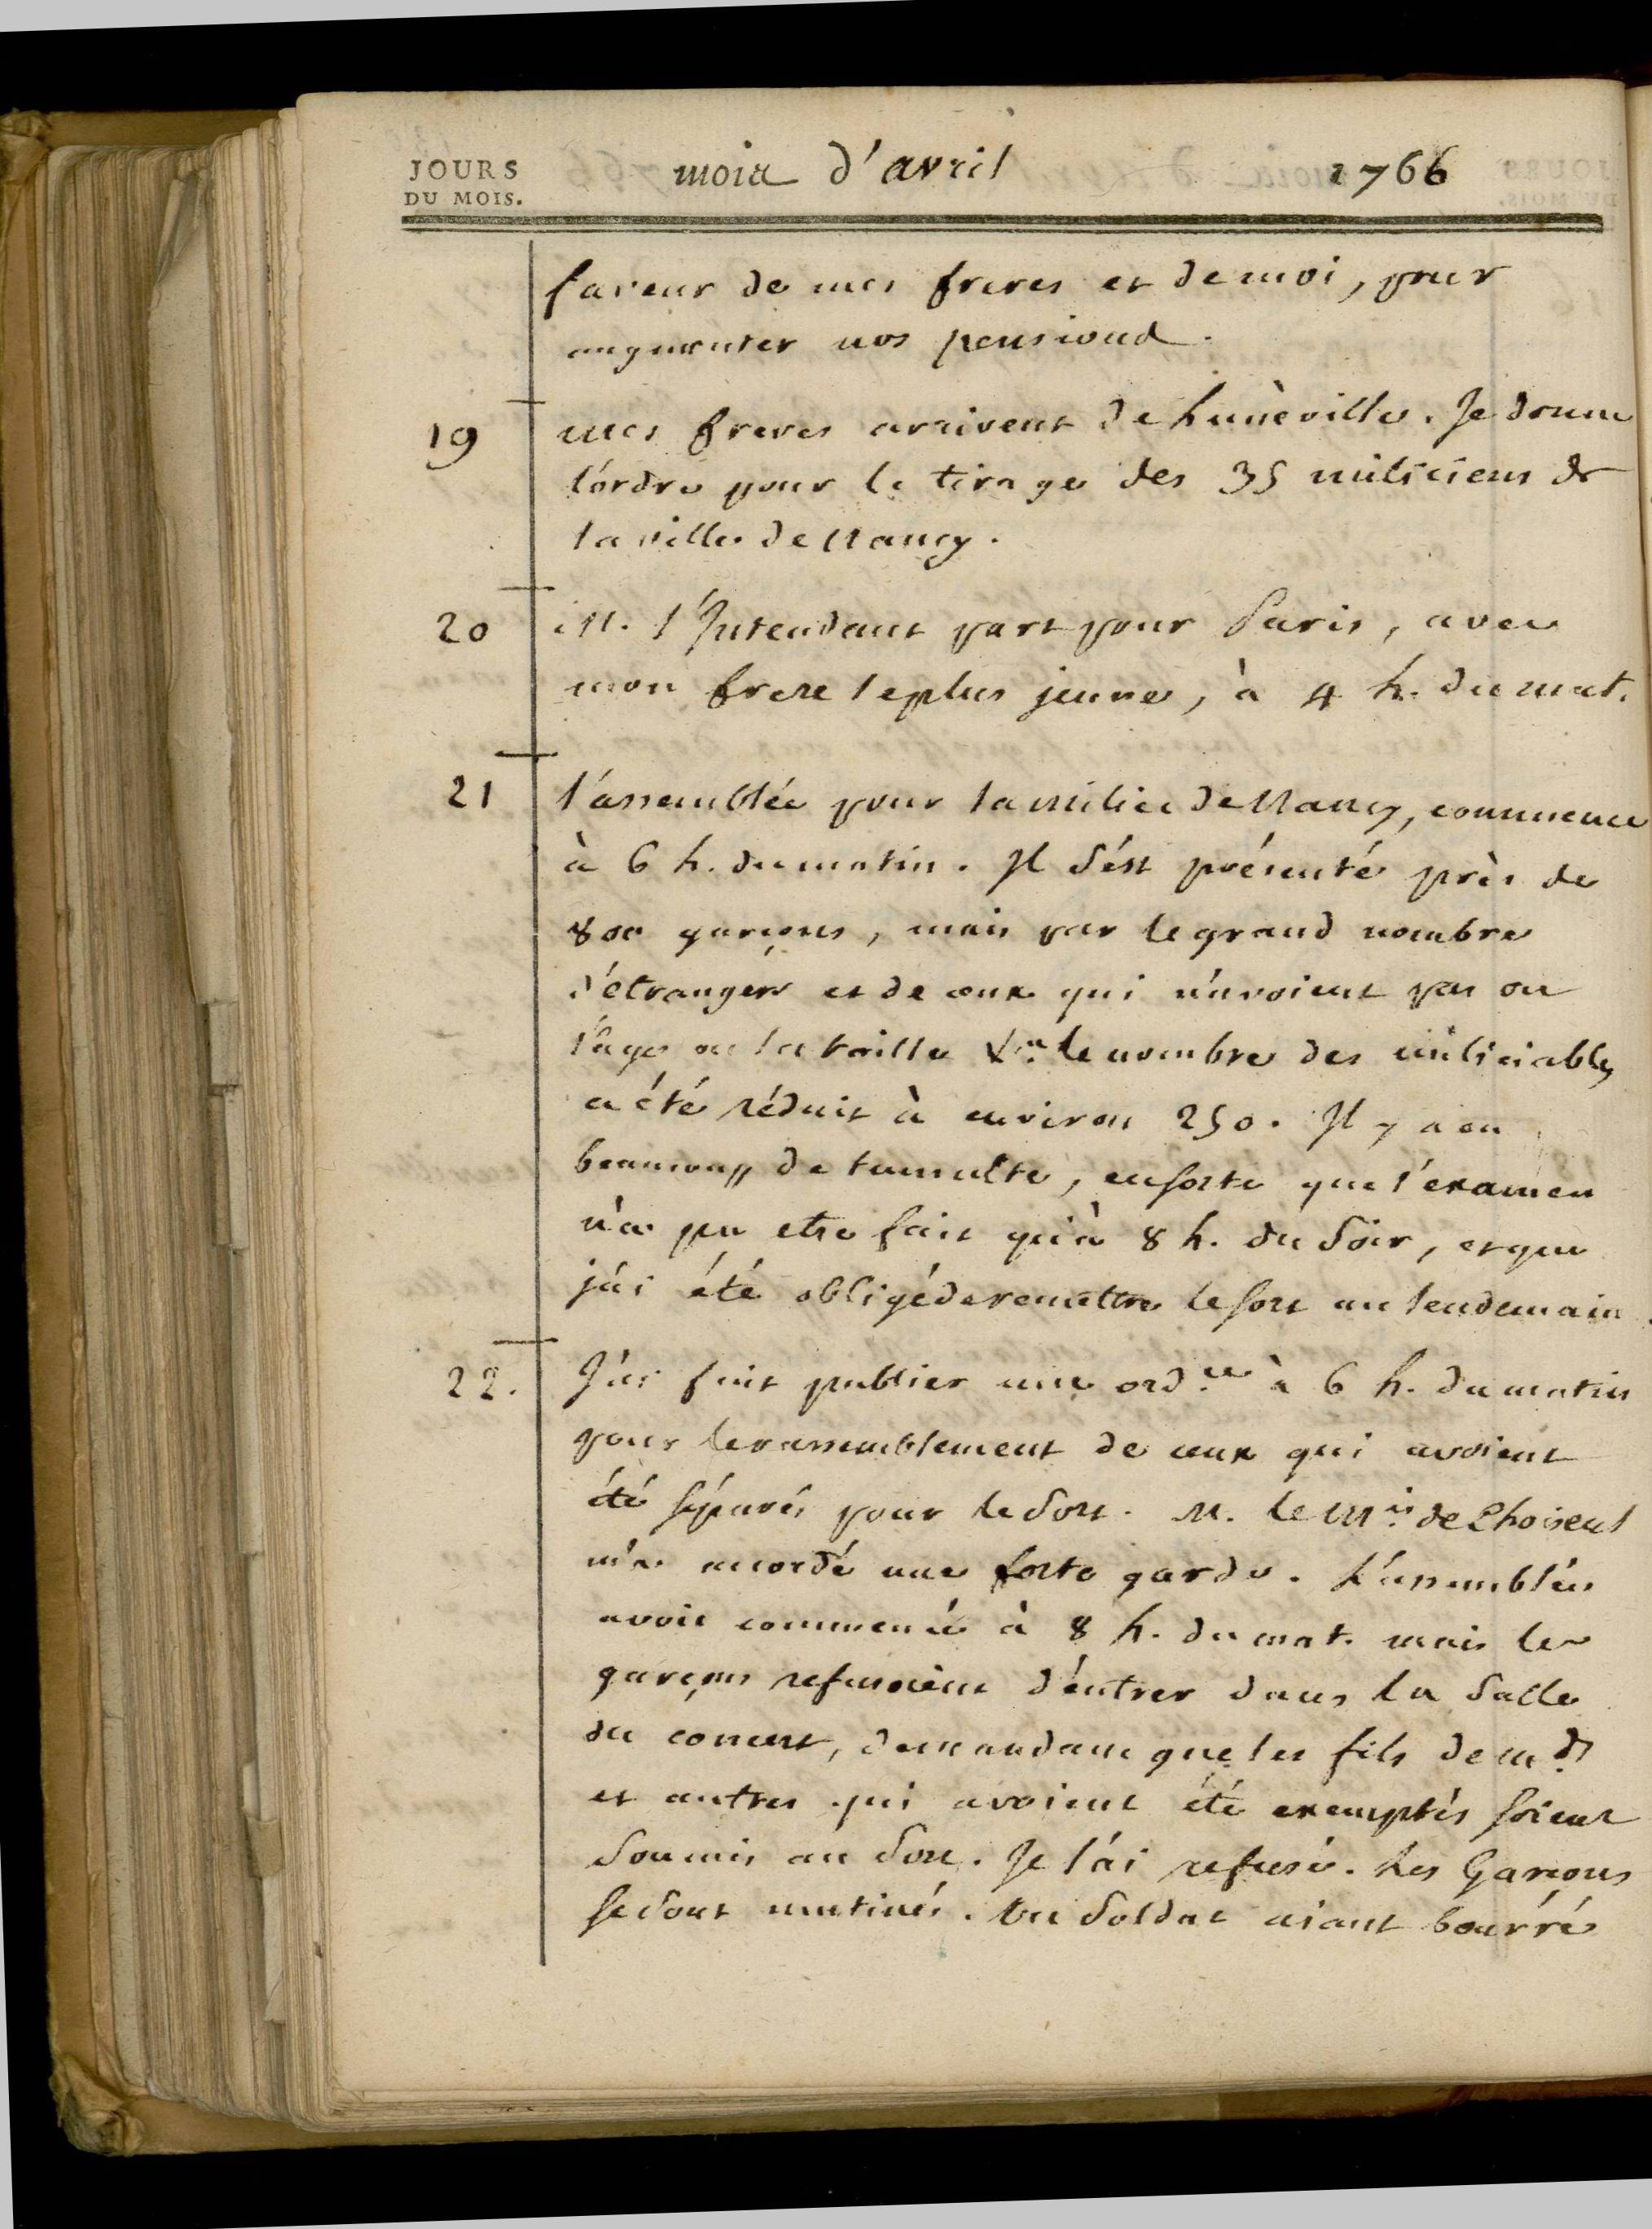 JOURS
DU MOIS.
mois d'avril 1766
faveur de mes freres et de moi, pour
augmenter nos pensions.
19 mes freres arrivent de Lunéville. Je donne
l'ordre pour le tirage des 35 miliciens de
la ville de Nancy.
20 M. l'Intendant part pour Paris, avec
mon frere le plus jeune, à 4 h. du mat.
21 l'assemblée pour la milice de Nancy, commence
à 6 h. du matin. Il s'est présenté près de
800 garçons, mais par le grand nombre
d'étrangers et de ceux qui n'avoient pas ou
l'age ou la taille &a. le nombre des miliciables
a été réduit à environ 250. Il y a eu
beaucoup de tumulte, ensorte que l'examen
n'a pu etre fait qu'à 8 h. du soir, et que
j'ai été obligé de remettre le sort au lendemain.
22. J'ai fait publier une ord.ce à 6 h. du matin
pour le rassemblement de ceux qui avoient
été séparés pour le sort. M. le M.is de Choiseul
m'a accordé une forte garde. L'assemblée
avoit commencé à 8 h. du mat. mais les
garçons refusoient d'entrer dans la salle
du concert, demandant que les fils de m.ds
et autres qui avoient été exemptés soient
soumis au sort. Je l'ai refusé. Les Garçons
se sont mutinés. Un soldat aiant bourré